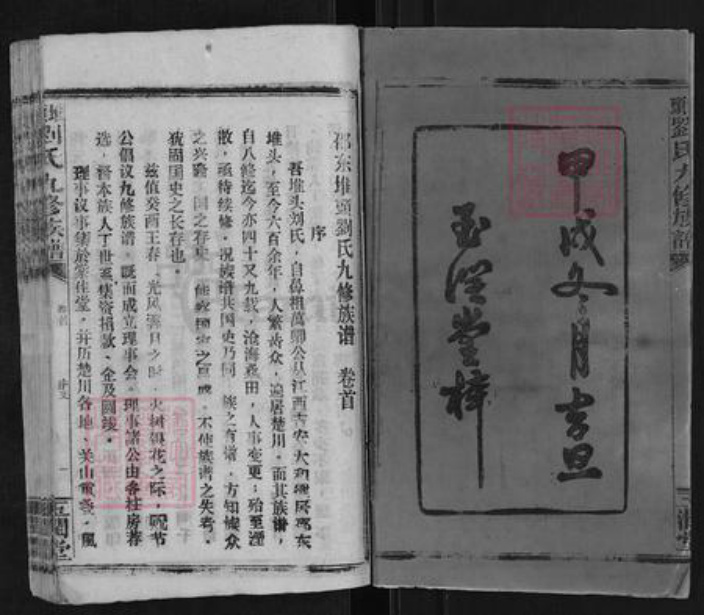 甲戌冬月吉旦
玉溪堂梓
頭劉氏九修族譜
邵东堆頭劉氏九修族谱 卷首
序
吾堆头刘氏，自鼻祖萬卿公从江西吉安太和徙居邵东
堆头，至今六百余年，人繁齿众，遍居楚川。而其族谱，
自八修迄今亦四十又九载，沧海桑田，人事变更；殆至湮
散，亟待续修。况族谱共国史乃同，族之有谱，方知族众
之兴隆，国之存史，能察国家之昌盛。不使族谱之失考，
犹固国史之长存也。
兹值癸酉王春，光风霁月之时，火树银花之际，祝节
公倡议九修族谱。既而成立理事会。理事诸公由各柱房荐
选，督本族人丁世系，集资捐款、
理事议事
堂，并历楚川各地、关山重叠，風
劉氏九修族譜
卷首
序文
一